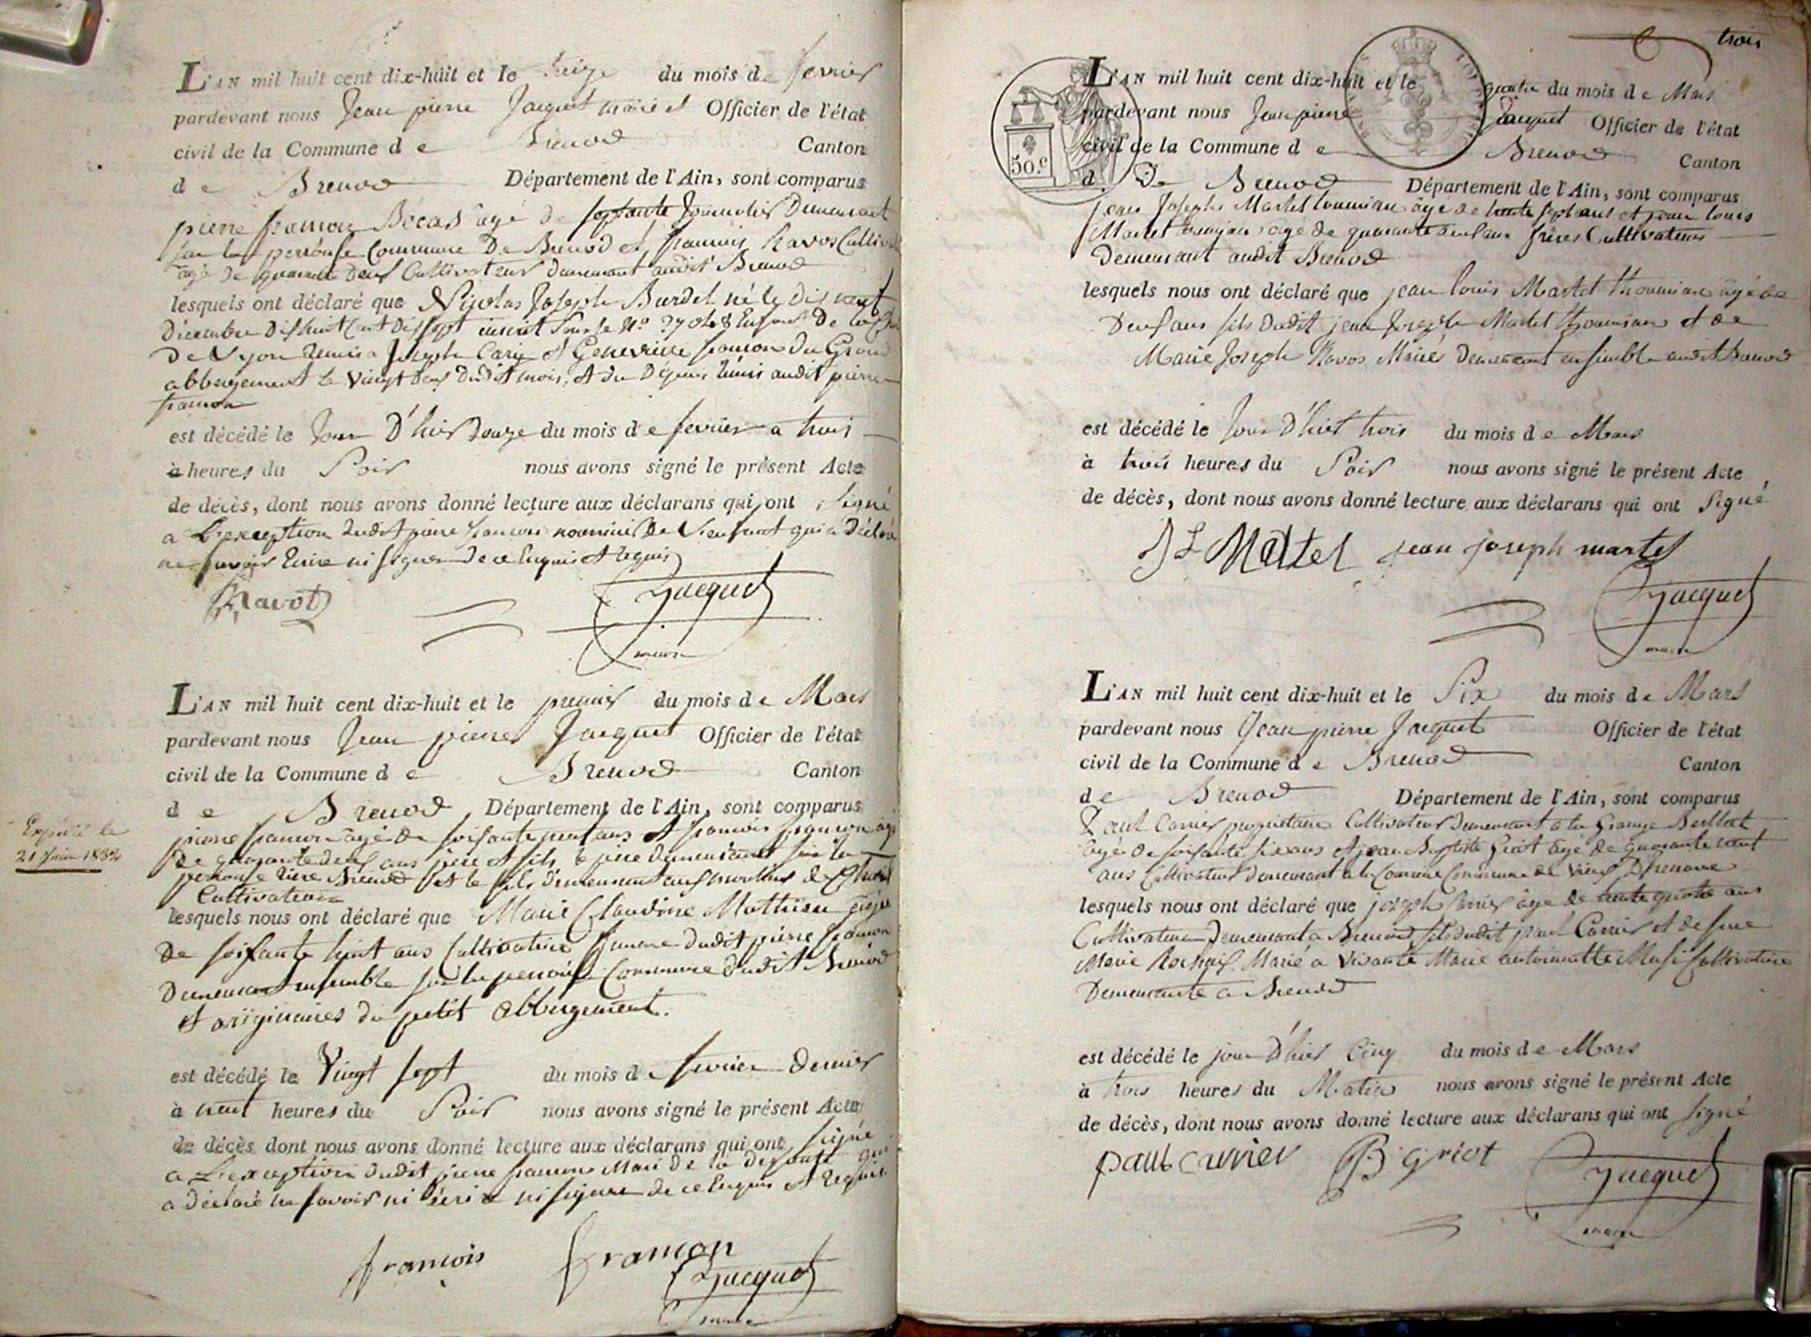 L'AN mil huit cent dix-huit et le treize du mois de fevrier
pardevant nous Jean pierre Jacquet maire et Officier de l'état
civil de la Commune de Brenod Canton
de Brenod Département de l'Ain, sont comparus
pierre françois agé de soixante Demeurant
sur la perrouse Commune De Brenod et françois Ravos Cultiv
agé de quarante deux Cultivateur demeurant audit Brenod
lesquels ont déclaré que Nicolas Joseph Burdel né le dix neuf
Décembre Dix huit Cent Dix sept inscrit sous le N°
De Lyon remis a Joseph Cary et Genevieve françon du Grand
abbergement le vingt deux dudit mois, et du Depuis remis audit pierre
françon
est décédé le Jour D'hier douze du mois de fevrier a trois
à heures du Soir nous avons signé le présent Acte
de décès, dont nous avons donné lecture aux déclarans qui ont Signé
a L'exception dudit pierre françon nourricier De L'enfant qui a Déclaré
ne savoir Ecrire ni signer de ce Enquis et requis
Ravot Jacquet
maire
L'AN mil huit cent dix-huit et le premier du mois de Mars
pardevant nous Jean pierre Jacquet Officier de l'état
civil de la Commune de Brenod Canton
de Brenod Département de l'Ain, sont comparus
Expédié le
21 Juin 1832
pierre françon agé de soixante neuf ans et françois françon agé
de quarante deux ans père et fils, le père demeurant sur la
perrouse rière Brenod et le fils demeurant aux moulins de
Cultivateurs
lesquels nous ont déclaré que Marie Claudine Mathieu agée
de soixante huit ans Cultivatrice femme dudit pierre françon
Demeurant ensemble sur la perrouse Commune dudit Brenod
et originaires du petit abbergement.
est décédé le Vingt sept du mois de fevrier dernier
à neuf heures du Soir nous avons signé le présent Acte
de décès dont nous avons donné lecture aux déclarans qui ont signé
a L'exception dudit pierre françon Mari de la defunte qui
a déclaré ne savoir ni Ecrire ni signer de ce Enquis et Requis
françois françon
Jacquet
maire
trois
50.c
L'AN mil huit cent dix-huit et le quatre du mois de Mars
pardevant nous Jean pierre Jacquet Officier de l'état
civil de la Commune de Brenod Canton
d. De Brenod Département de l'Ain, sont comparus
jean Joseph Martel thoumian âgé de trente sept ans et jean louis
Martel thoumian agé de quarante deux ans frères Cultivateurs
Demeurant audit Brenod
lesquels nous ont déclaré que jean louis Martel thoumian âgé de
Deux ans fils dudit jean Joseph Martel thoumian et de
Marie Joseph Ravos Mariés demeurant ensemble audit Brenod
est décédé le Jour D'hier trois du mois de Mars
à trois heures du Soir nous avons signé le présent Acte
de décès, dont nous avons donné lecture aux déclarans qui ont Signé
J L Martel jean joseph martel
Jacquet
maire
L'AN mil huit cent dix-huit et le Six du mois de Mars
pardevant nous Jean pierre Jacquet Officier de l'état
civil de la Commune de Brenod Canton
de Brenod Département de l'Ain, sont comparus
Paul Carrier propriétaire Cultivateur demeurant a la Grange
agé de soixante six ans et jean Baptiste Griot agé de quarante neuf
ans Cultivateur demeurant a la Commune de Vieux D'henome
lesquels nous ont déclaré que joseph Carrier âgé de trente quatre ans
Cultivateur Demeurant a Brenod fils dudit paul Carrier et de feue
Marie Marié a vivante Marie antoinette Cultivatrice
Demeurante a Brenod
est décédé le jour D'hier Cinq du mois de Mars
à trois heures du Matin nous avons signé le présent Acte
de décès, dont nous avons donné lecture aux déclarans qui ont Signé
paul carrier B Griot Jacquet
maire